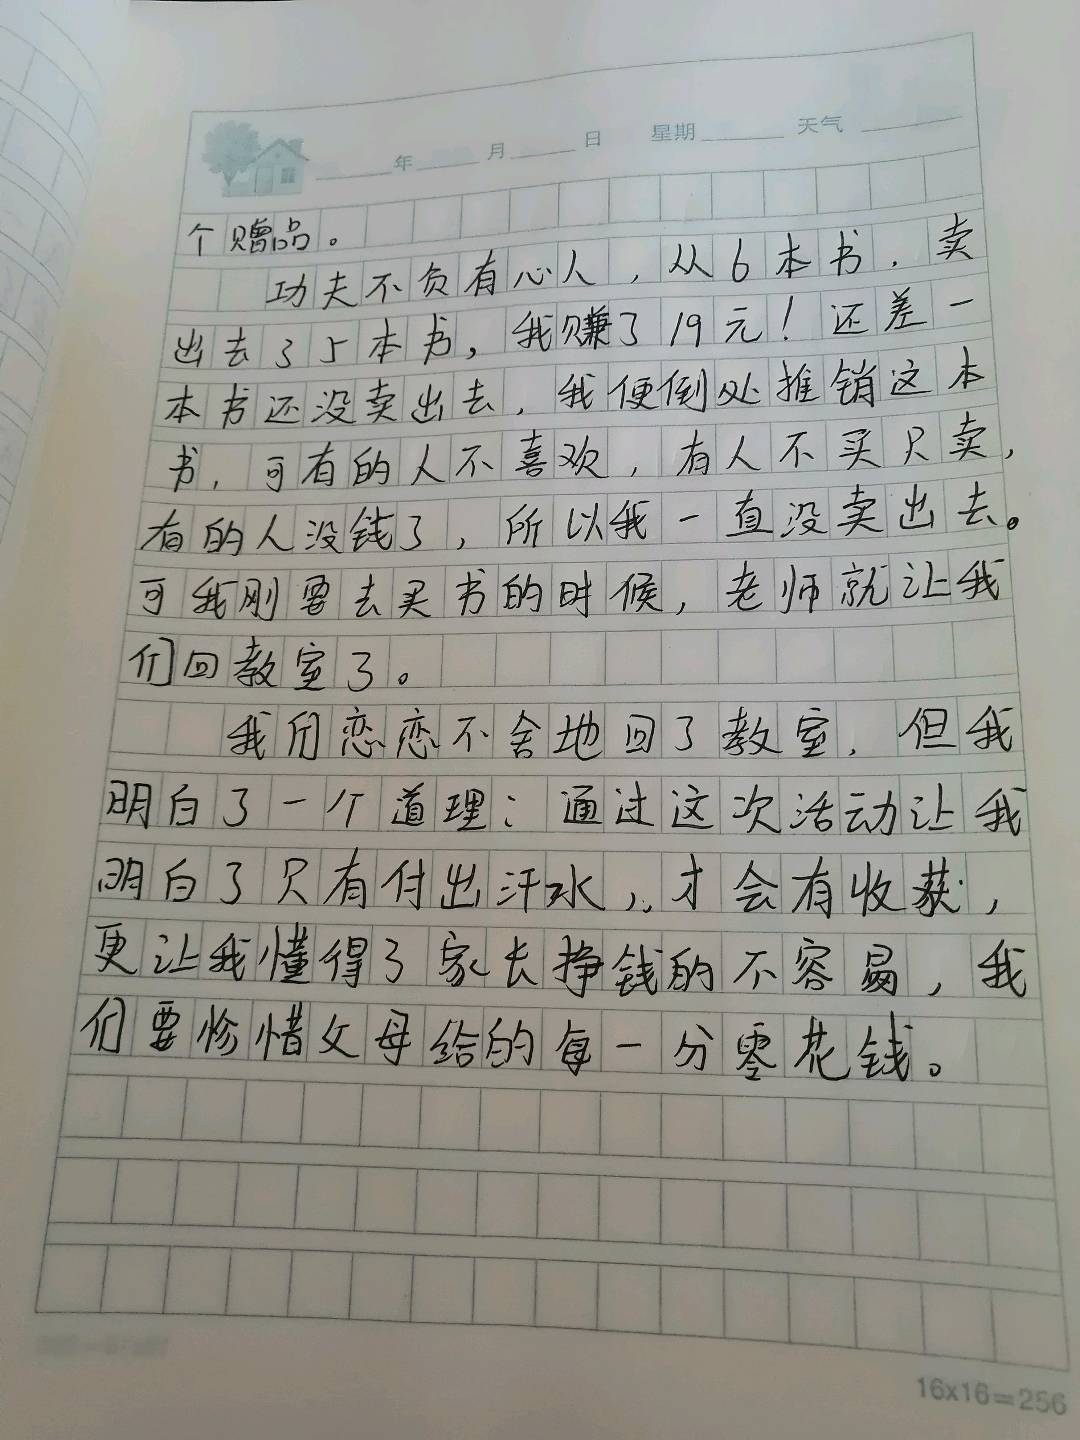 年 月 日 星期 天气
个赠品。
功夫不负有心人，从6本书，卖
出去了5本书，我赚了19元！还差一
本书还没卖出去，我便倒处推销这本
书，可有的人不喜欢，有人不买只卖，
有的人没钱了，所以我一直没卖出去。
可我刚要去买书的时候，老师就让我
们回教室了。
我们恋恋不舍地回了教室，但我
明白了一个道理：通过这次活动让我
明白了只有付出汗水，才会有收获，
更让我懂得了家长挣钱的不容易，我
们要珍惜父母给的每一分零花钱。
16x16=256